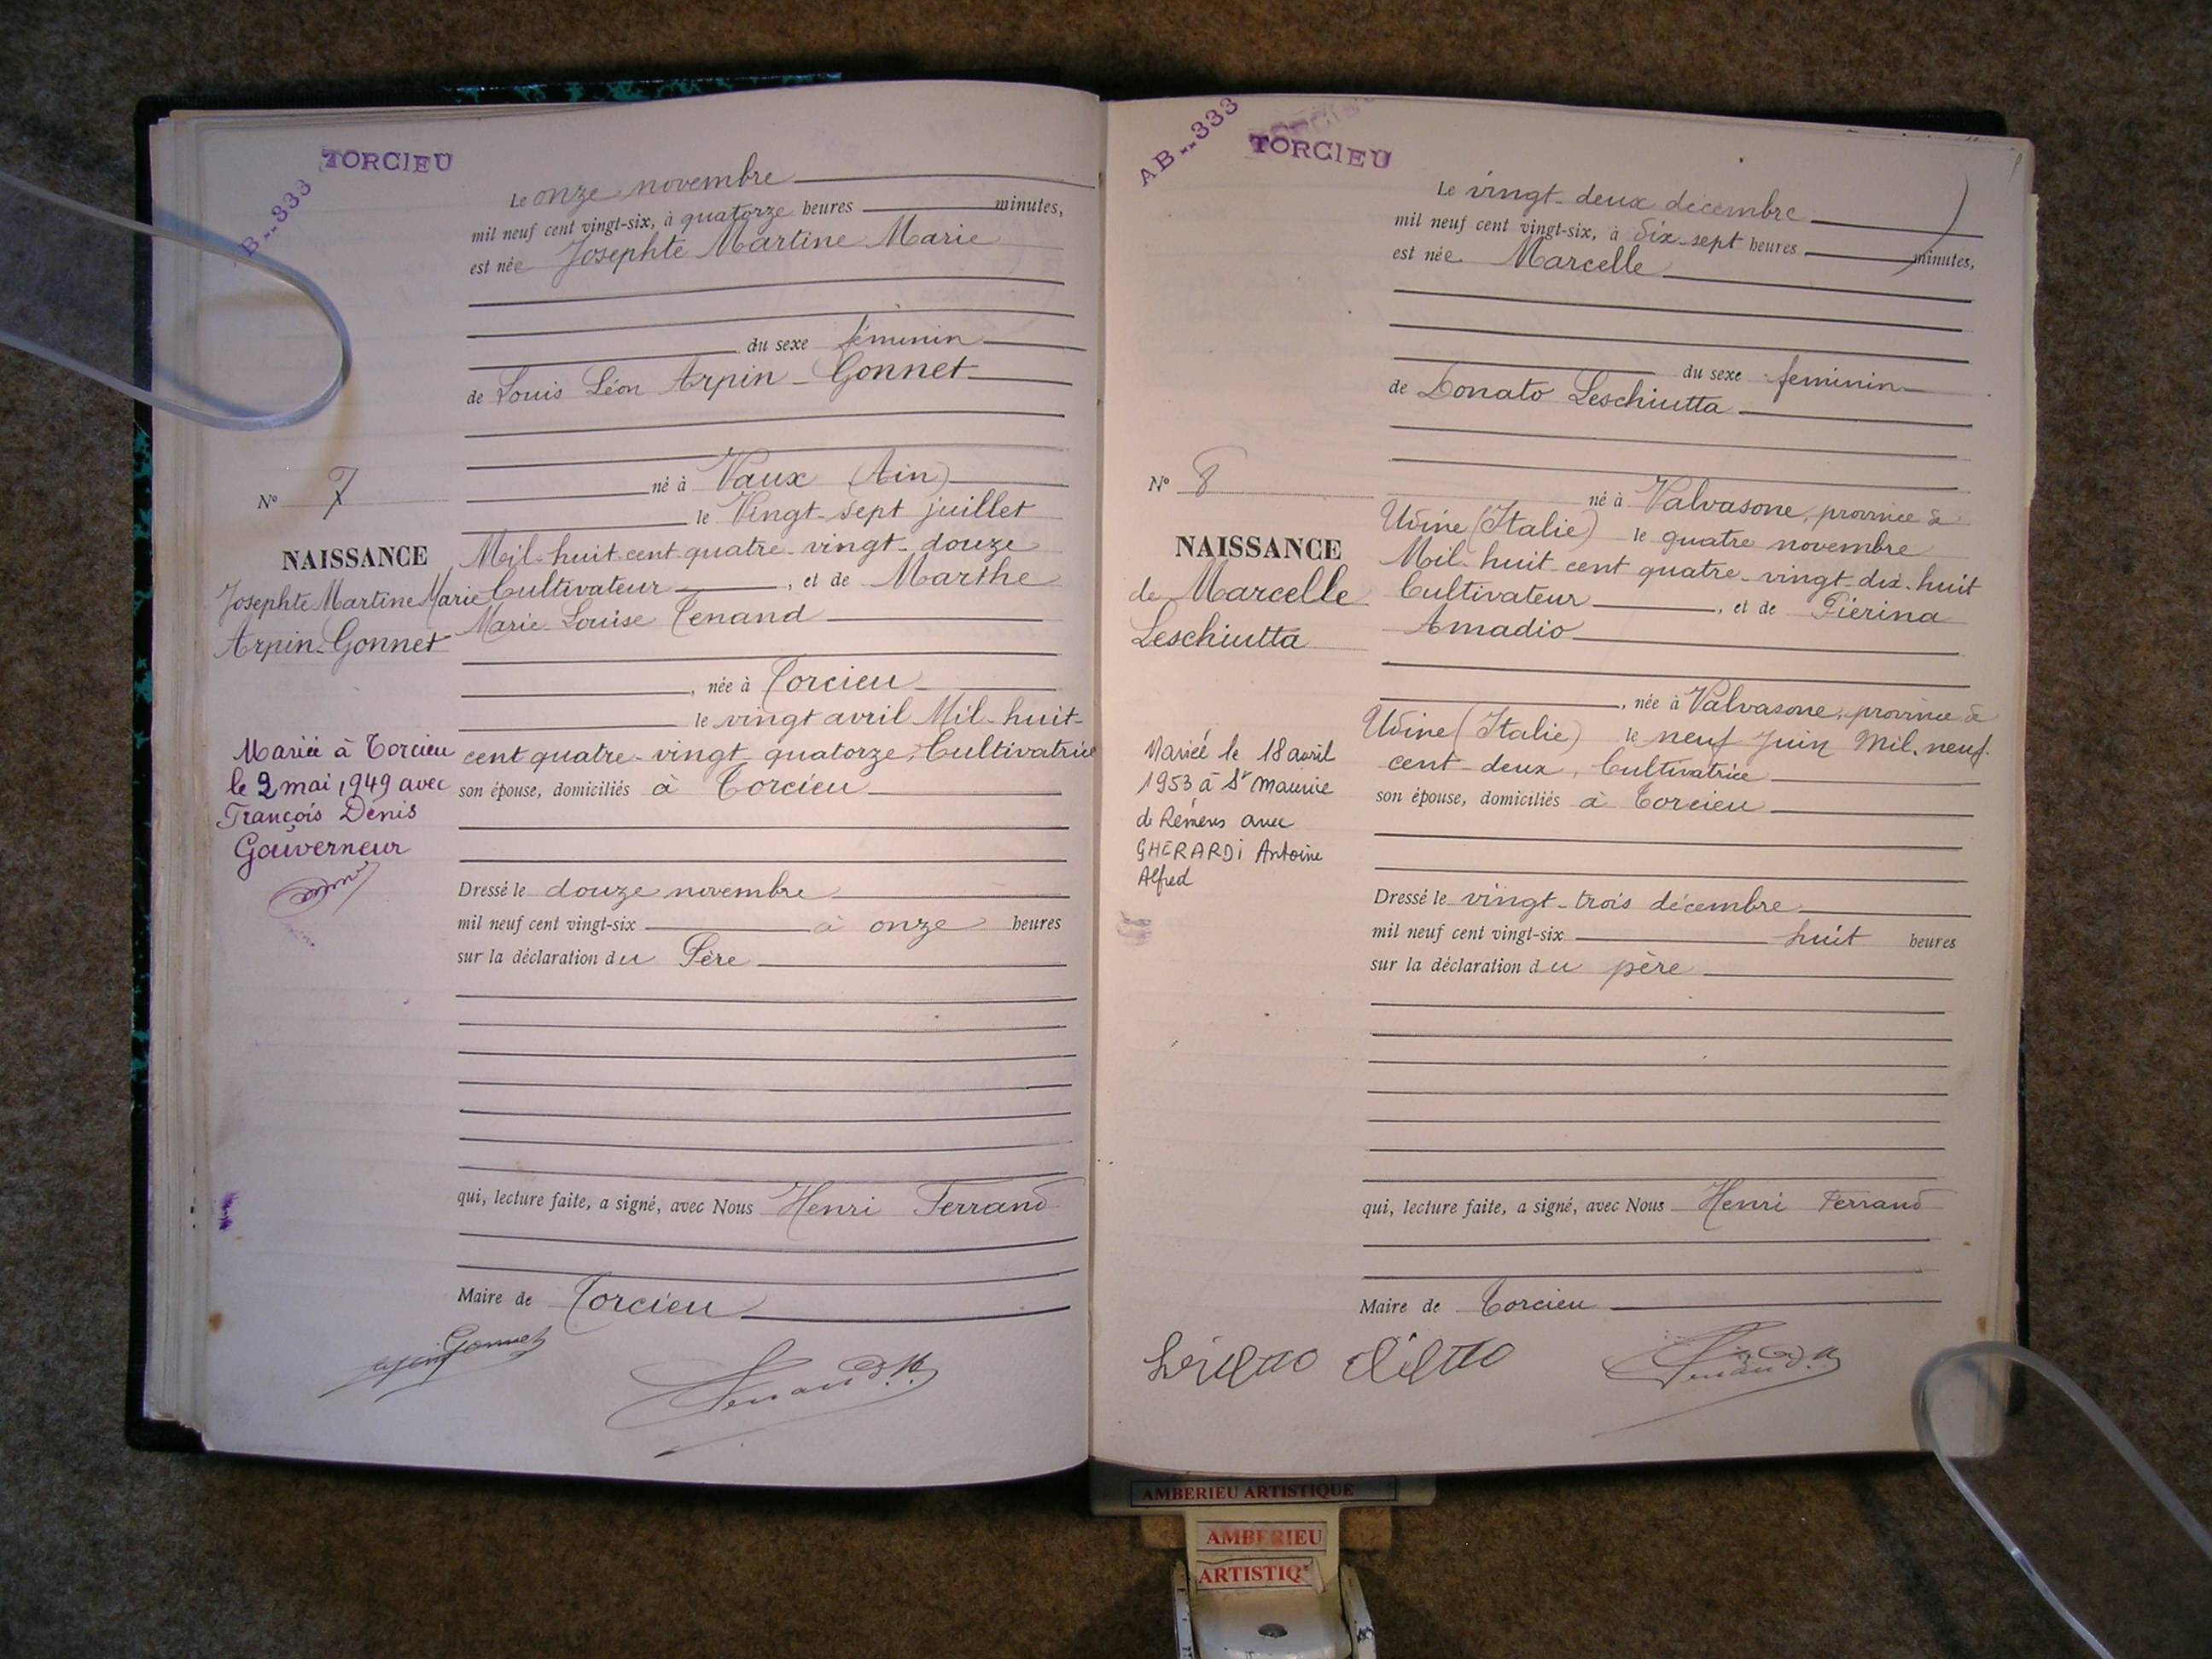 TORCIEU
B--333
Le onze novembre
mil neuf cent vingt-six, à quatorze heures minutes,
est née Josephte Martine Marie
du sexe féminin
de Louis Léon Arpin-Gonnet
né à Vaux (Ain)
le Vingt-sept juillet
Mil-huit-cent quatre-vingt-douze
Cultivateur, et de Marthe
Marie Louise Tenand
, née à Torcieu
le vingt avril Mil-huit-
cent quatre-vingt quatorze, Cultivatrice
son épouse, domiciliés à Torcieu
Dressé le douze novembre
mil neuf cent vingt-six à onze heures
sur la déclaration du Père
qui, lecture faite, a signé, avec Nous Henri Ferrand
Maire de Torcieu
Nº 7
NAISSANCE
Josephte Martine Marie
Arpin-Gonnet
Mariée à Torcieu
le 2 mai 1949 avec
François Denis
Gouverneur
Gonnet
AB--333
TORCIEU
Le vingt-deux décembre
mil neuf cent vingt-six, à dix-sept heures minutes,
est née Marcelle
du sexe feminin
de Donato Leschiutta
né à Valvasone, province de
Udine (Italie) le quatre novembre
Mil-huit-cent quatre-vingt-dix-huit
Cultivateur, et de Pierina
Amadio
, née à Valvasone, province de
Udine (Italie) le neuf Juin Mil-neuf-
cent-deux, Cultivatrice
son épouse, domiciliés à Torcieu
Dressé le vingt-trois décembre
mil neuf cent vingt-six huit heures
sur la déclaration du père
qui, lecture faite, a signé, avec Nous Henri Ferrand
Maire de Torcieu
Nº 8
NAISSANCE
de Marcelle
Leschiutta
Mariée le 18 avril
1953 à St Maurice
de Rémens avec
GHERARDI Antoine
Alfred
AMBERIEU ARTISTIQUE
AMBERIEU
ARTISTIQ